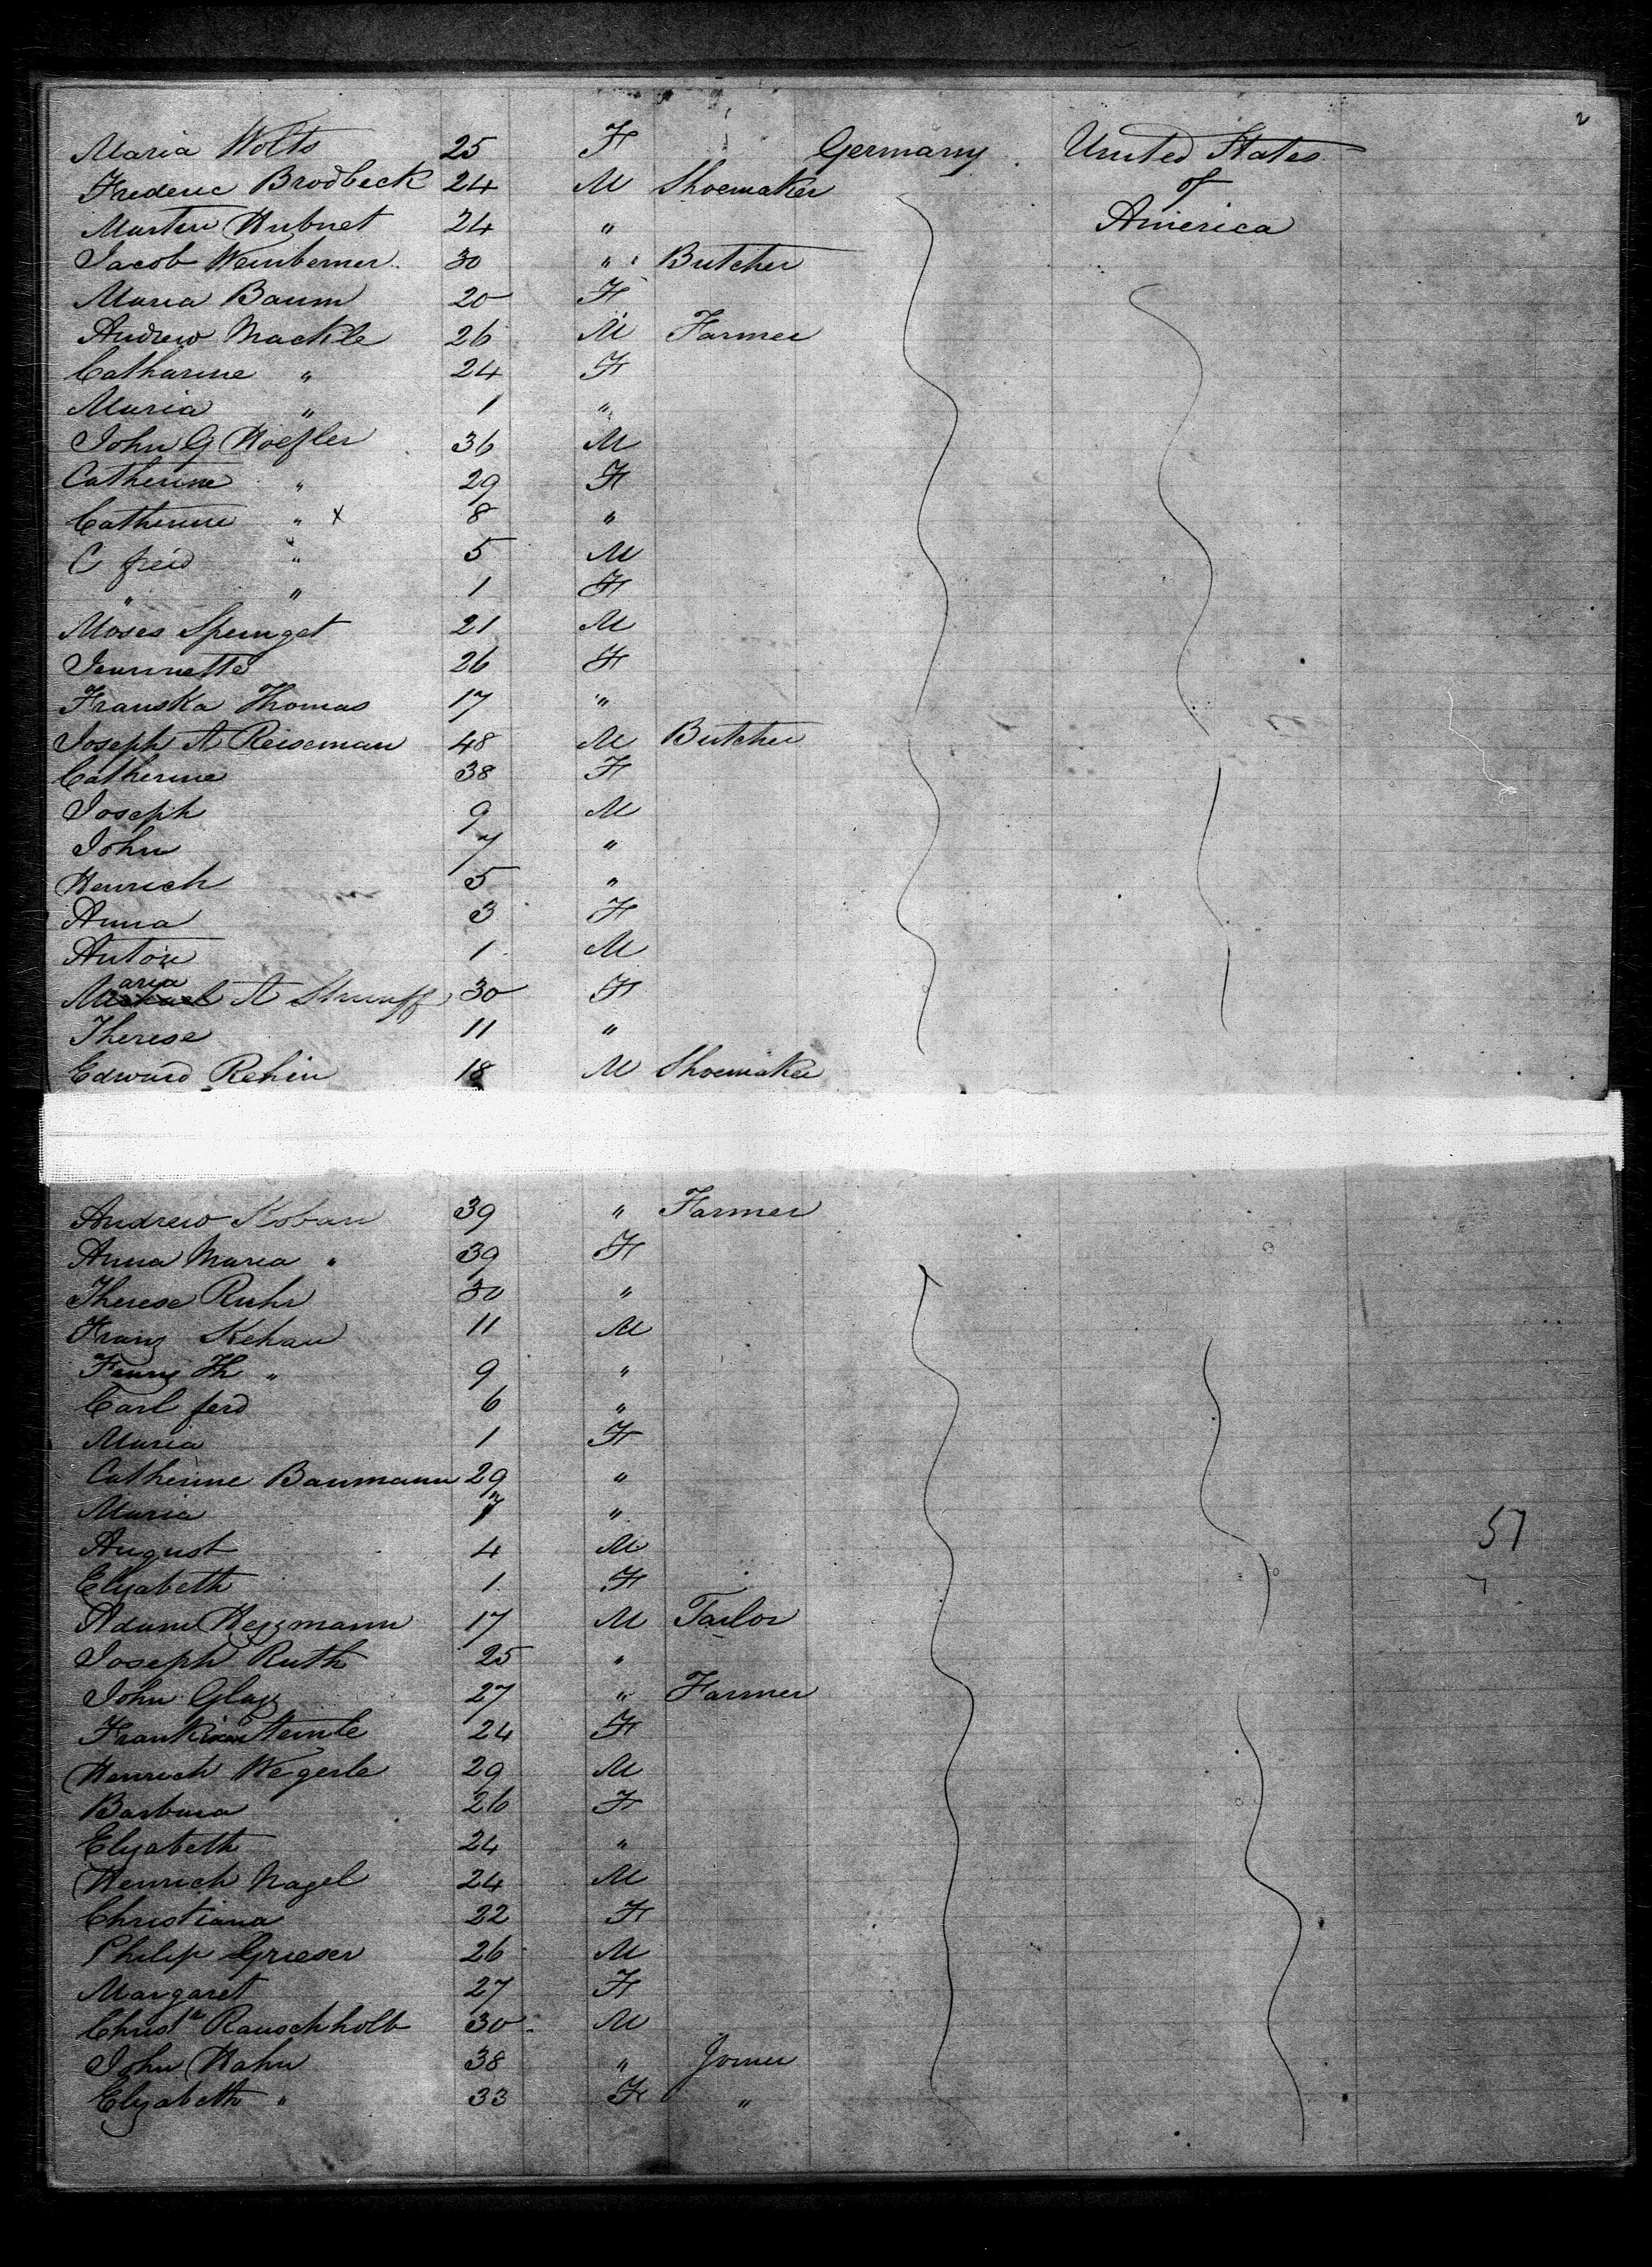 2
Maria Wolts 25 F Germany United States
Frederic Brodbeck 24 M Shoemaker of
Martin Hubnet 24 " America
Jacob Weinberner 30 " Butcher
Maria Baum 20 F
Andrew Mackle 26 M Farmer
Catharine " 24 F
Maria " 1 "
John G Hoefler 36 M
Catherine " 29 F
Catherine " x 8 "
C freid " 5 M
" " 1 F
Moses Speunget 21 M
Jeannette 26 F
Franska Thomas 17 "
Joseph A Reiseman 48 M Butcher
Catherine 38 F
Joseph 9 M
John 7 "
Henrich 5 "
Anna 3 F
Anton 1 M
Maria A Strunff 30 F
Therese 11 "
Edward Rehin 18 M Shoemaker
Andrew Koban 39 " Farmer
Anna Maria " 39 F
Therese Ruhr 30 "
Franz Kehau 11 M
Franz Th " 9 "
Carl ferd 6 "
Maria 1 F
Catherine Baumann 29 "
Maria 7 "
August 4 M
Elyabeth 1 F
Adam Heyzmann 17 M Tailor
Joseph Ruth 25 "
John Glay 27 " Farmer
24 F
Henrich Wegerle 29 M
Barbara 26 F
Elyabeth 24 "
Henrich Nagel 24 M
Christiana 22 F
Philip Grieser 26 M
Margaret 27 F
Christn Rauschholb 30 M
John Hahn 38 " Joiner
Elyabeth " 33 F "
57